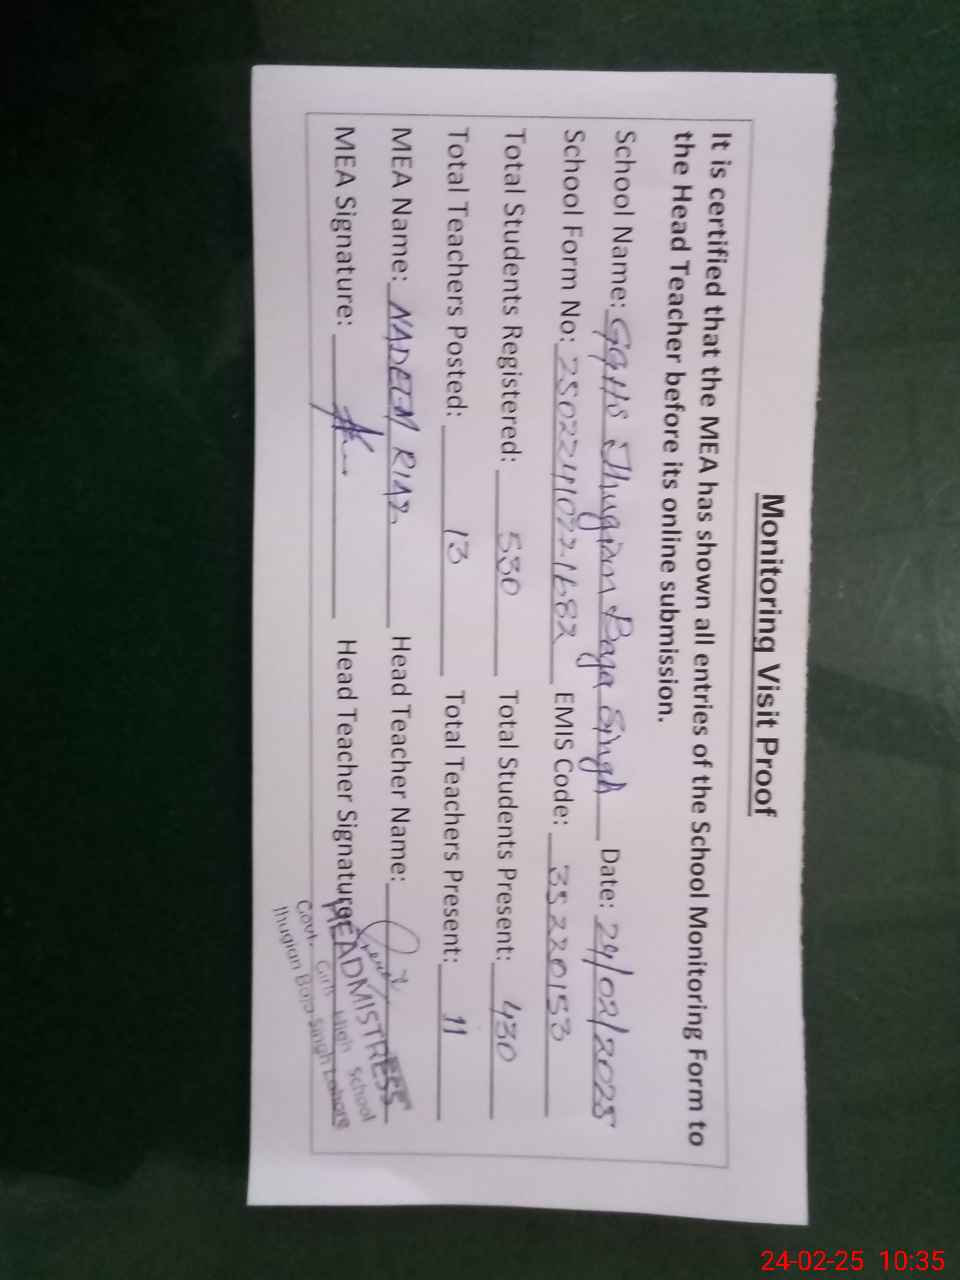 Monitoring Visit Proof
It is certified that the MEA has shown all entries of the School Monitoring Form to
the Head Teacher before its online submission.
School Name: GGHS Jhugian Baga Singh Date: 24/02/2025
School Form No: EMIS Code: 35220153
Total Students Registered: 530 Total Students Present: 430
Total Teachers Posted: 13 Total Teachers Present: 11
MEA Name: NADEEM RIAZ Head Teacher Name:
MEA Signature: Head Teacher Signature:
HEADMISTRESS
Govt. Girls High School
Jhugian Baja Singh Lahore
24-02-25 10:35